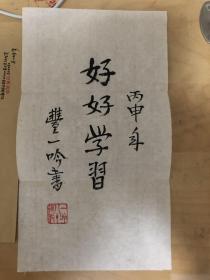 丙申年
好好学習
豐一吟書